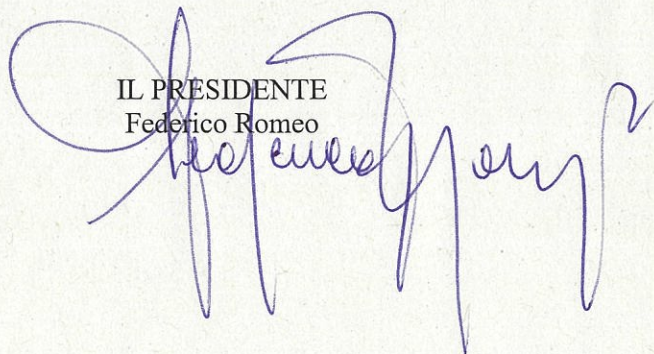 IL PRESIDENTE
Federico Romeo
Federico Romeo